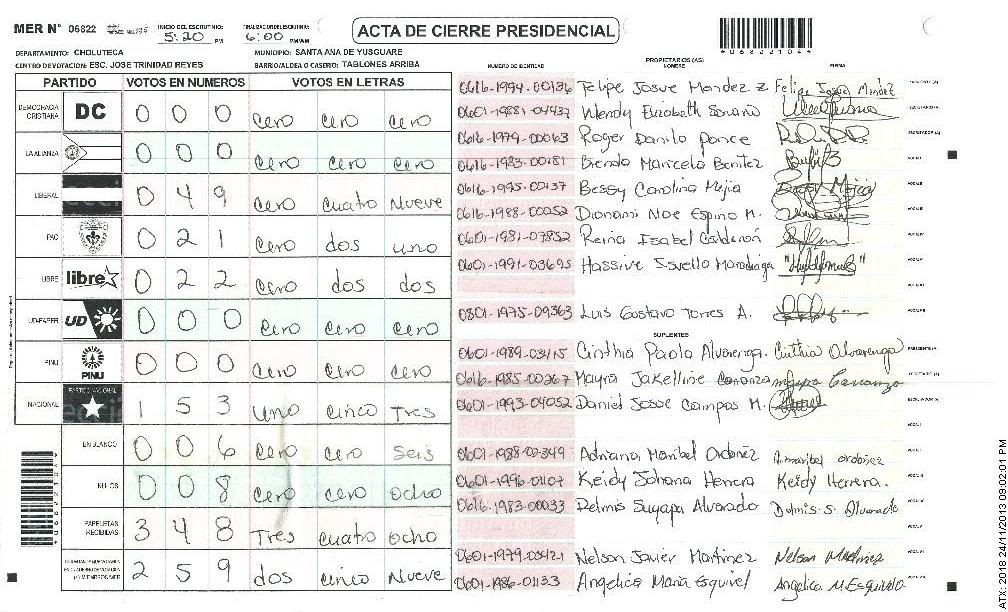 MER N° 06822 INICIO DEL ESCRUTINIO: 5:20 PM FINALIZACION DEL ESCRUTINIO: 6:00 PM/AM ACTA DE CIERRE PRESIDENCIAL
0682210 4
DEPARTAMENTO: CHOLUTECA MUNICIPIO: SANTA ANA DE YUSGUARE
CENTRO DE VOTACION: ESC. JOSE TRINIDAD REYES BARRIO/ALDEA O CASERIO: TABLONES ARRIBA
PARTIDO VOTOS EN NUMEROS VOTOS EN LETRAS
DEMOCRACIA CRISTIANA DC 0 0 0 cero cero cero
LA ALIANZA 0 0 0 cero cero cero
LIBERAL 0 4 9 cero cuatro Nueve
PAC 0 2 1 cero dos uno
LIBRE libre 0 2 2 cero dos dos
UD-FAPER UD 0 0 0 cero cero cero
PINU PINU 0 0 0 cero cero cero
NACIONAL PARTIDO NACIONAL 1 5 3 uno cinco Tres
EN BLANCO 0 0 6 cero cero seis
NULOS 0 0 8 cero cero ocho
PAPELETAS RECIBIDAS 3 4 8 Tres cuatro ocho
2 5 9 dos cinco Nueve
NUMERO DE IDENTIDAD PROPIETARIOS (AS) NOMBRE FIRMA
0616-1994-00136 Felipe Josue Mendez Z Felipe Josue Mendez
0601-1988-04437 Wendy Elizabeth Soriano
0616-1979-00063 Roger Danilo Ponce
0616-1983-00181 Brenda Maricela Benitez
0616-1995-00137 Bessy Carolina Mejia Bessy Mejia
0616-1988-00052 Dionami Noe Espino M.
0601-1981-07852 Reina Isabel Calderón
0601-1991-03695 Hassive
0801-1975-09363 Luis Gustavo Torres A.
SUPLENTES
0601-1989-03415 Cinthia Paola Alvarenga. Cinthia Alvarenga
0616-1985-00267 Mayra Jakelline Carranza Mayra Carranza
0601-1993-04052 Daniel Josue Campos M.
0601-1988-02349 Adriana Maribel Ordoñez A.maribel ordoñez
0601-1996-01107 Keidy Johana Herrera Keidy Herrera.
0616-1983-00033 Delmis Suyapa Alvarado Delmis S. Alvarado
0601-1979-03421 Nelson Javier Martinez Nelson Martinez
0601-1986-01133 Angelica Maria Esquivel Angelica M. Esquivel
ATX 2018 24/11/2013 09:02:01 PM